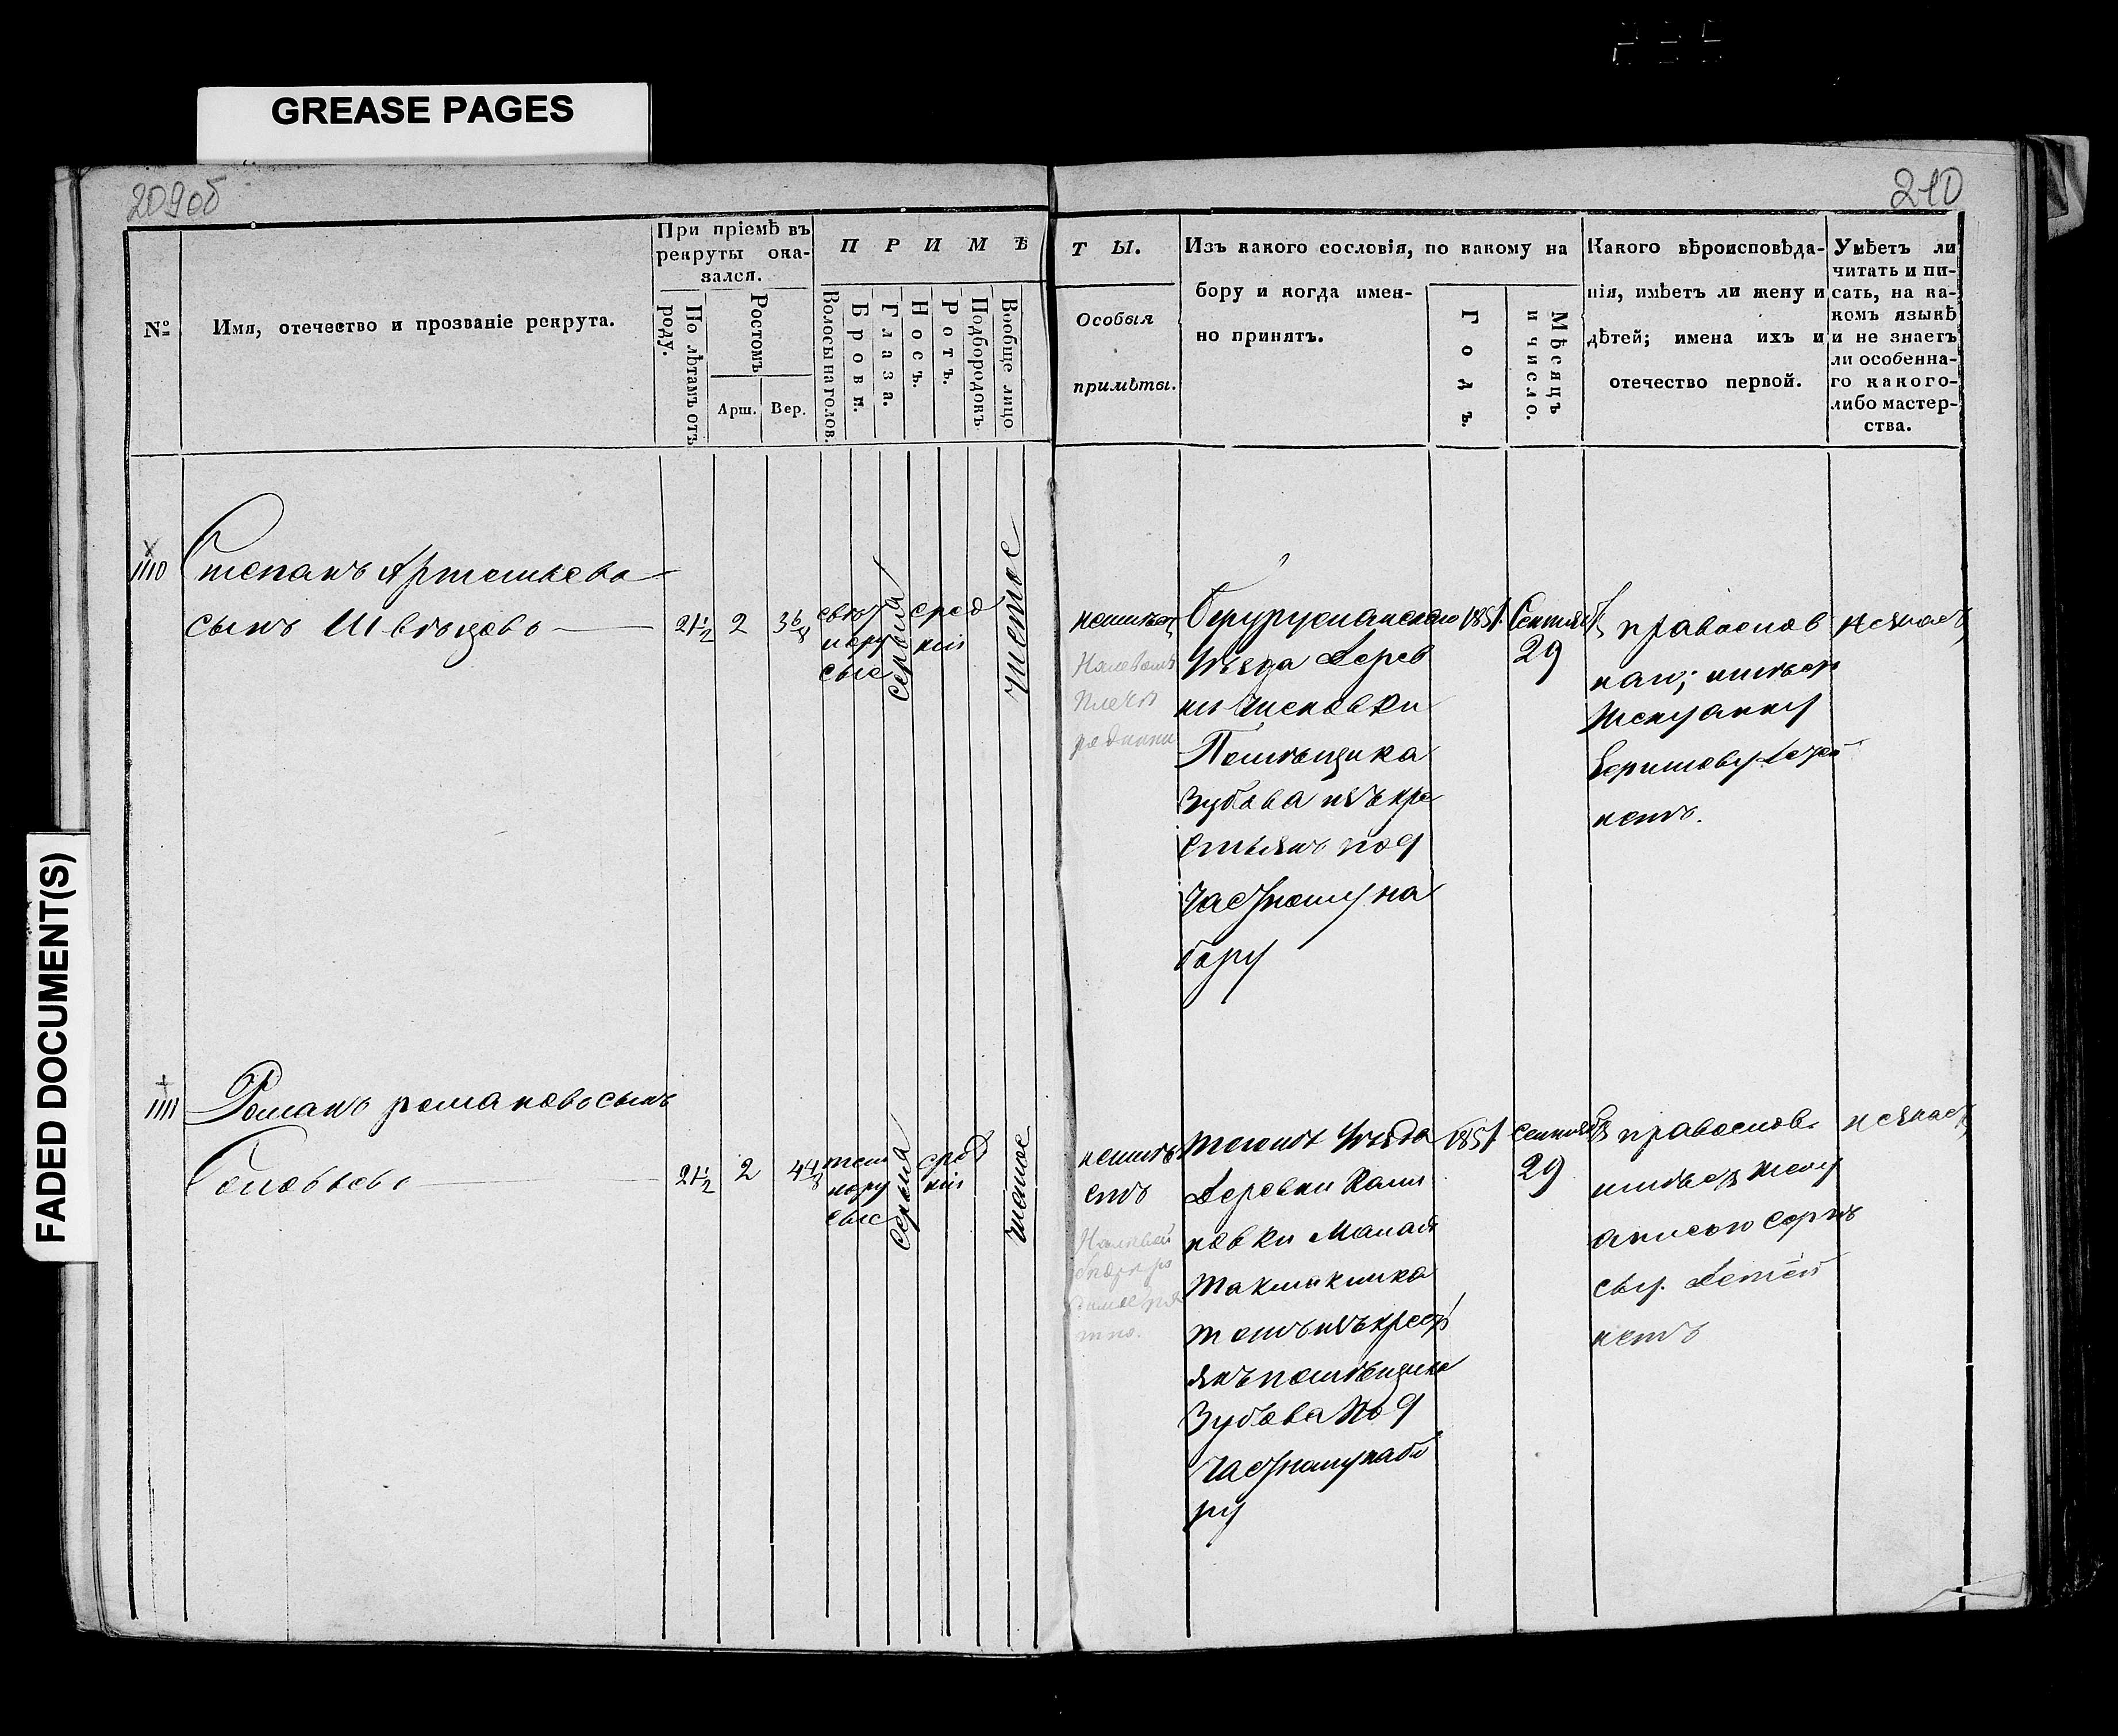 GREASE PAGES
FADED DOCUMENT(S)
209об
210
№
Имя, отечество и прозваніе рекрута.
При пріемѣ въ
рекруты ока-
зался.
По лѣтамъ отъ
роду.
Ростомъ
Арш. Вер.
П Р И М Ѣ
Волосы на голов.
Брови.
Глаза.
Носъ.
Ротъ.
Подбородокъ
Вообще лицо
Т Ы.
Особыя
примѣты.
Изъ какого сословія, по какому на
бору и когда имен-
но принятъ.
Годъ.
Мѣсяцъ
и число.
Какого вѣроисповѣда-
нія, имѣетъ ли жену и
дѣтей; имена ихъ и
отечество первой.
Умѣетъ ли
читать и пи-
сать, на ка-
комъ языкѣ
и не знаетъ
ли особенна-
го какого-
либо мастер-
ства.
1110
Степанъ Артемьевъ
сынъ Швецовъ
21½ 2 3 6/8
свѣт
лору
сые
серыя
сред
ніи
чистое
неимѣет
На левомъ
плечѣ
родинки
Уѣзда Дерев
ни
Помѣщика
Зубова изъ кре
стьянъ по 9
частному на
бору
1851
Сентяб
29
православ
наго; имѣет
жену анну
детей
нетъ.
незнает
1111
Романъ романовъ сынъ
Соловьевъ
21½ 2 4 4/8
тем
нору
сые
серыя
сред
ніи
неимѣ
етъ
тогожъ Уѣзда
Деревни
изъ крест
янъ помѣщика
Зубова по 9
частному набо
ру
1851
сентяб
29
православ
имѣет жену
детей
нетъ
незнает